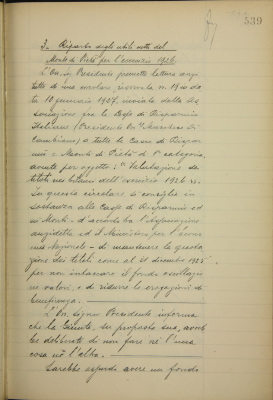 539
3. Riparto degli utili netti del
Monte di Pietà per l'esercizio 1926.
L'On. Presidente premette lettura anzi
tutto di una circolare, riservata n. 19 in da
ta 10 gennaio 1927, inviata dalla As
sociazione fra le Casse di Risparmio
Italiane (Presidente On. Marchese De
Capitani) a tutte le Casse di Rispar
mio e Monti di Pietà di 1ª categoria,
avente per oggetto: "Valutazione dei
titoli nei bilanci dell'esercizio 1926".
In questa circolare si consiglia in
sostanza alle Casse di Risparmio ed
ai Monti - d'accordo tra l'Associazione
anzidetta ed il Ministero per l'Econo
mia Nazionale - di mantenere la quota
zione dei titoli come al 31 dicembre 1925
per non intaccare il fondo oscillazio
ni valori, e di ridurre le erogazioni di
beneficenza.
L'On. signor Presidente informa
che la Giunta, su proposta sua, avreb
be deliberato di non fare nè l'una
cosa nè l'altra.
Sarebbe assurdo avere un fondo